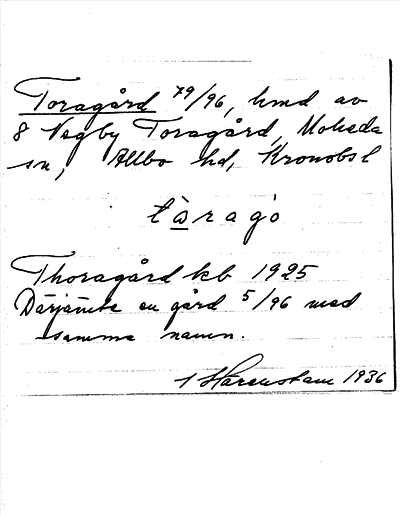 Toragård 79/96, hmd av
8 Vegby Toragård, Moheda
sn, Allbo hd, Kronobs l
tàragò
Thoragård kb 1925
Därjämte en gård 5/96 med
samma namn.
Härenstam 1936